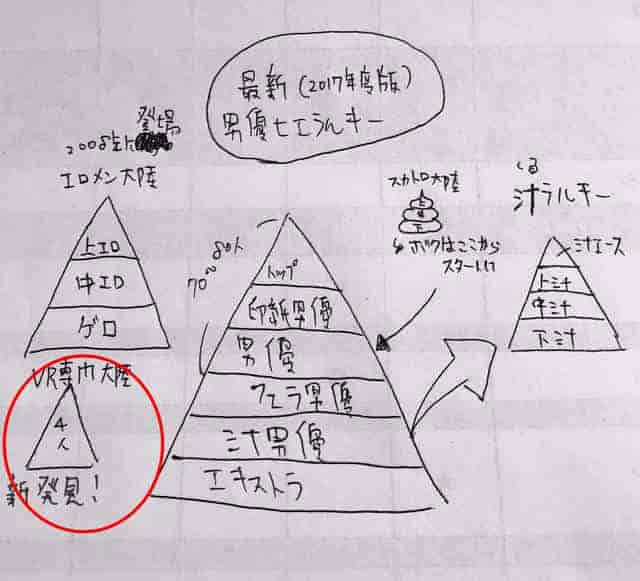 最新(2017年度版)
男優ヒエラルキー
登場
2008年に
エロメン大陸
上エロ
中エロ
ゲロ
VR専門大陸
4人
新発見!
70〜80人
トップ
印新男優
男優
フェラ男優
汁男優
エキストラ
スカトロ大陸
上
中
下
ボクはここから
スタート!!
しる
汁ラルキー
汁エース
上汁
中汁
下汁